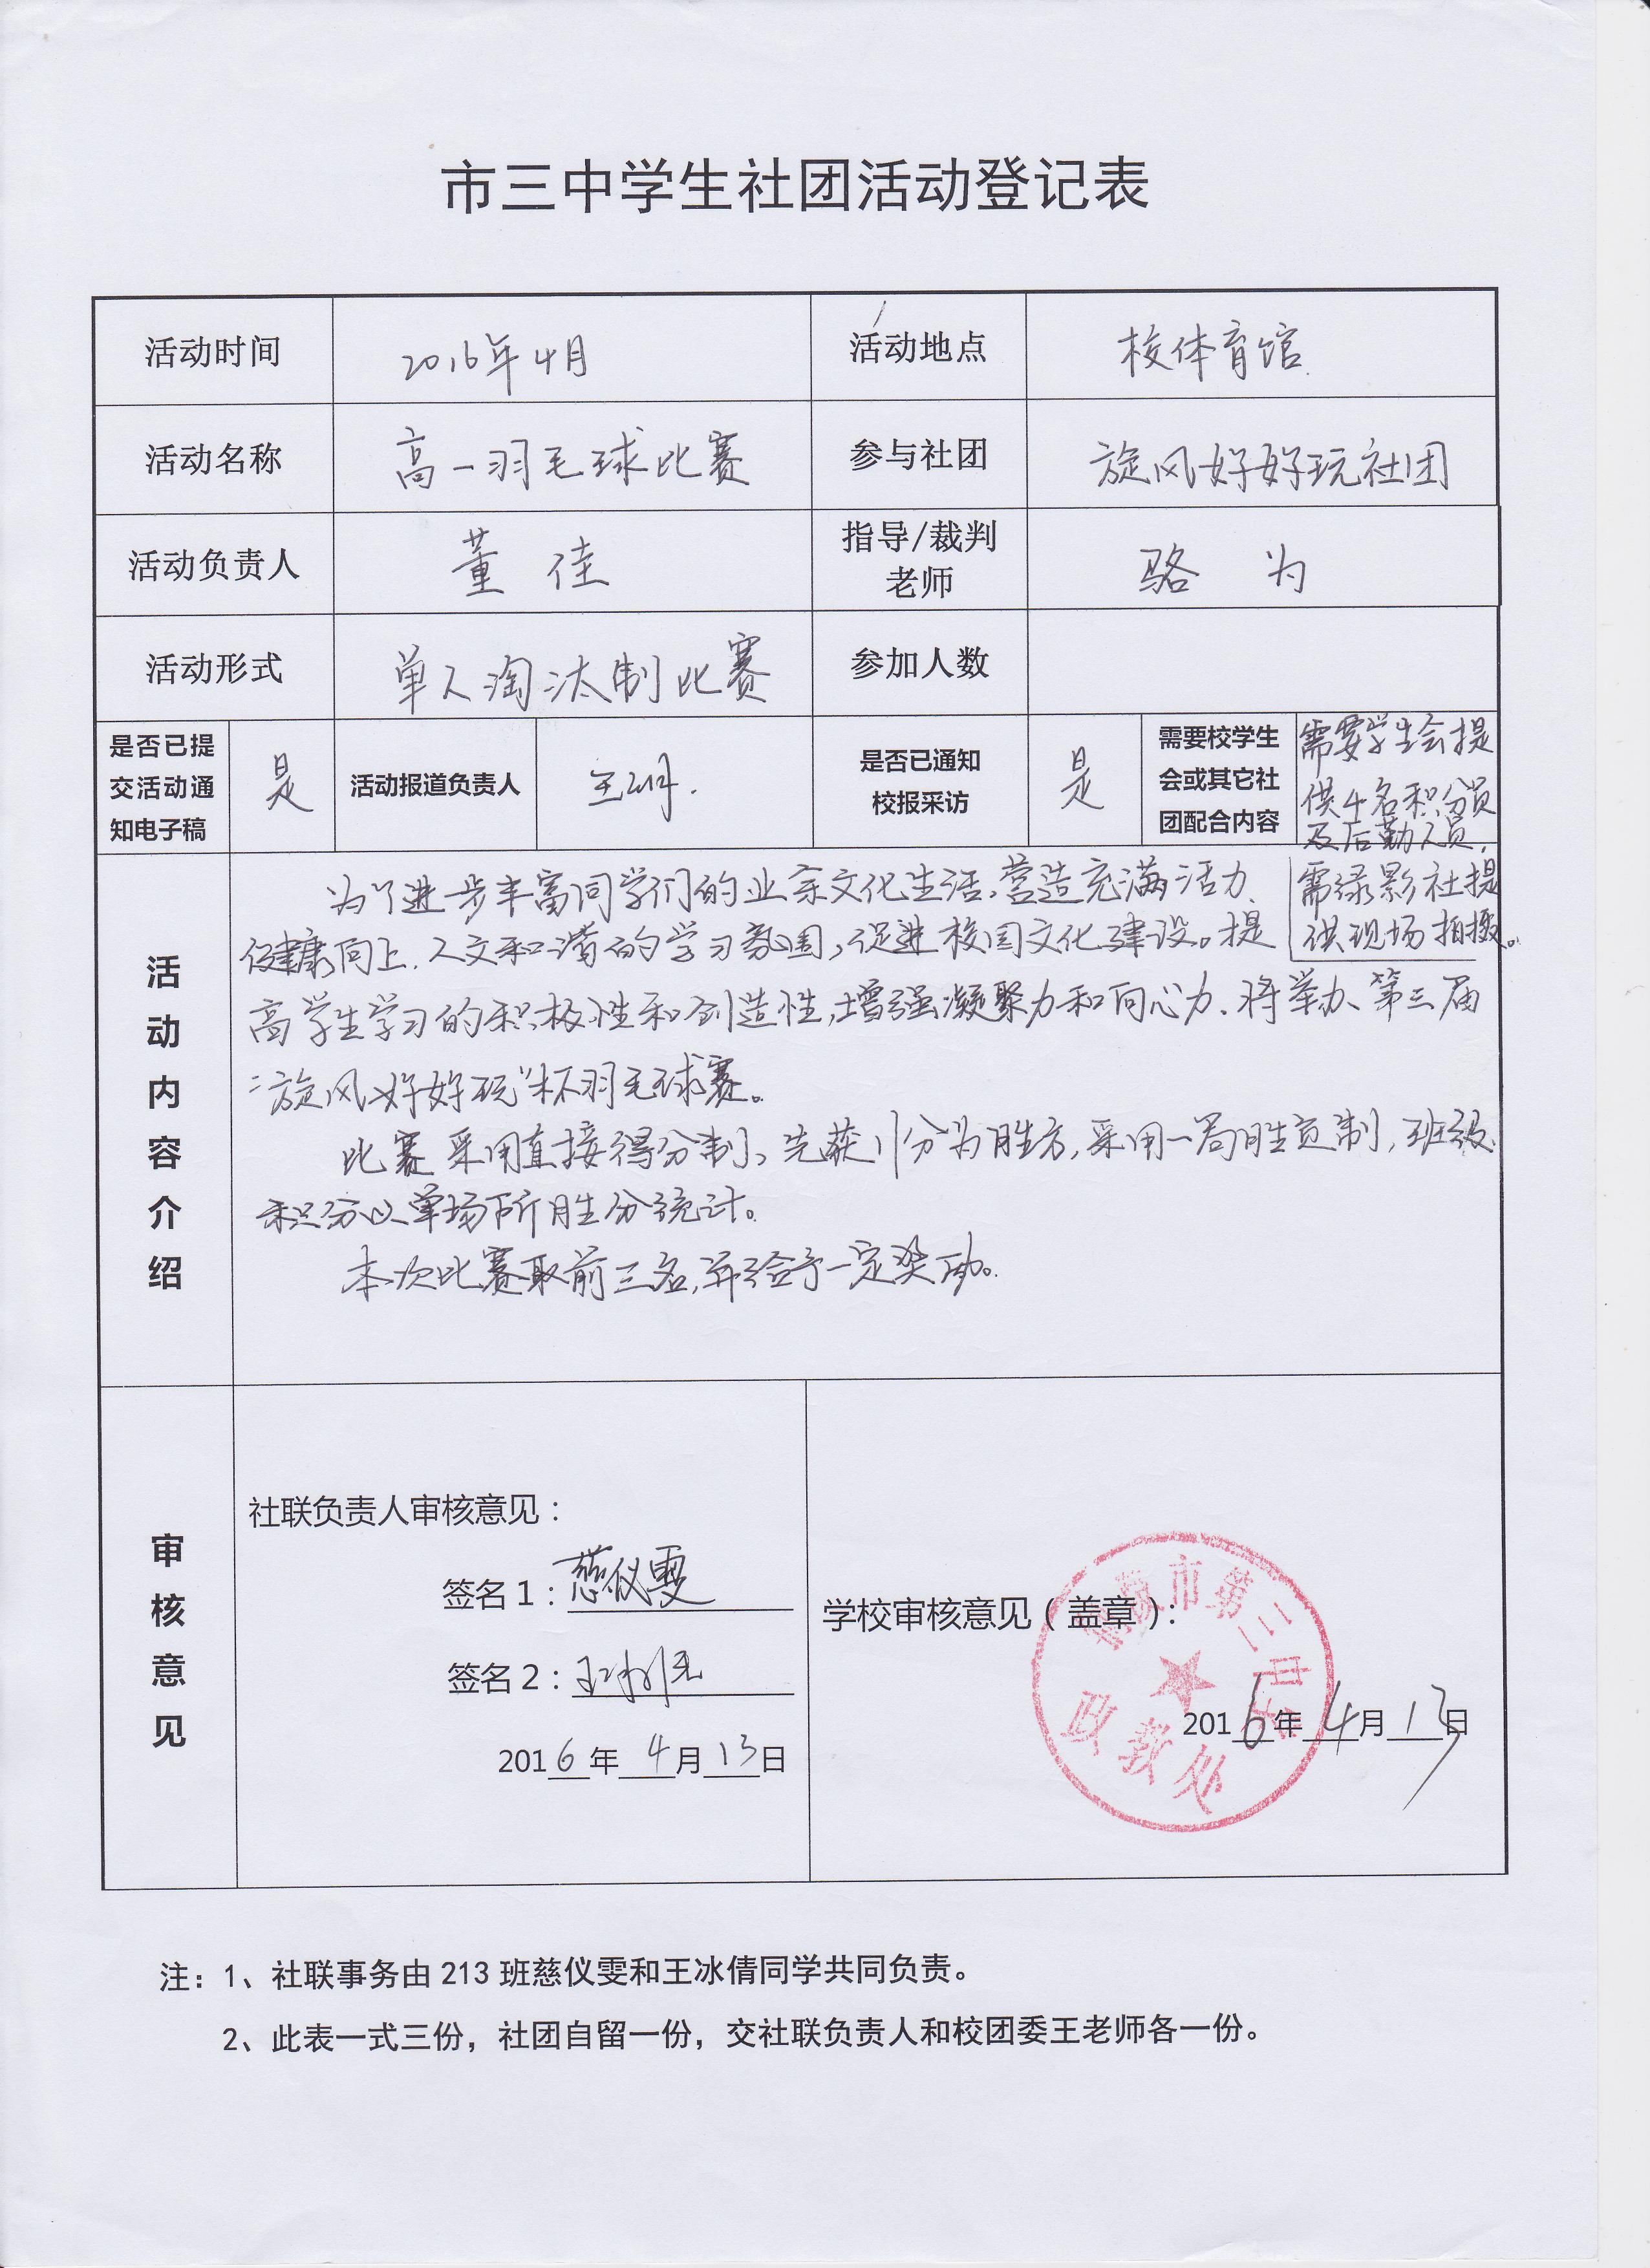 市三中学生社团活动登记表
活动时间 2016年4月 活动地点 校体育馆
活动名称 高一羽毛球比赛 参与社团 旋风好好玩社团
活动负责人 董佳 指导/裁判
老师 骆为
活动形式 单人淘汰制比赛 参加人数
是否已提
交活动通
知电子稿 是 活动报道负责人 是否已通知
校报采访 是 需要校学生
会或其它社
团配合内容 需要学生会提
供4名积分员
及后勤人员,
需绿影社提
供现场拍摄。
活动内容介绍
为了进步丰富同学们的业余文化生活,营造充满活力、
健康向上、人文和谐的学习氛围,促进校园文化建设。提
高学生学习的积极性和创造性,增强凝聚力和向心力、将举办第三届
“旋风好好玩”杯羽毛球赛。
比赛采用直接得分制、先获11分为胜方,采用一局胜负制,班级
积分以单场所胜分统计。
本次比赛取前三名,并给予一定奖励。
审核意见
社联负责人审核意见:
签名1:慈仪雯
签名2:
2016年4月13日
学校审核意见(盖章):
市第三中学
政教处
2016年4月13日
注:1、社联事务由213班慈仪雯和王冰倩同学共同负责。
2、此表一式三份,社团自留一份,交社联负责人和校团委王老师各一份。